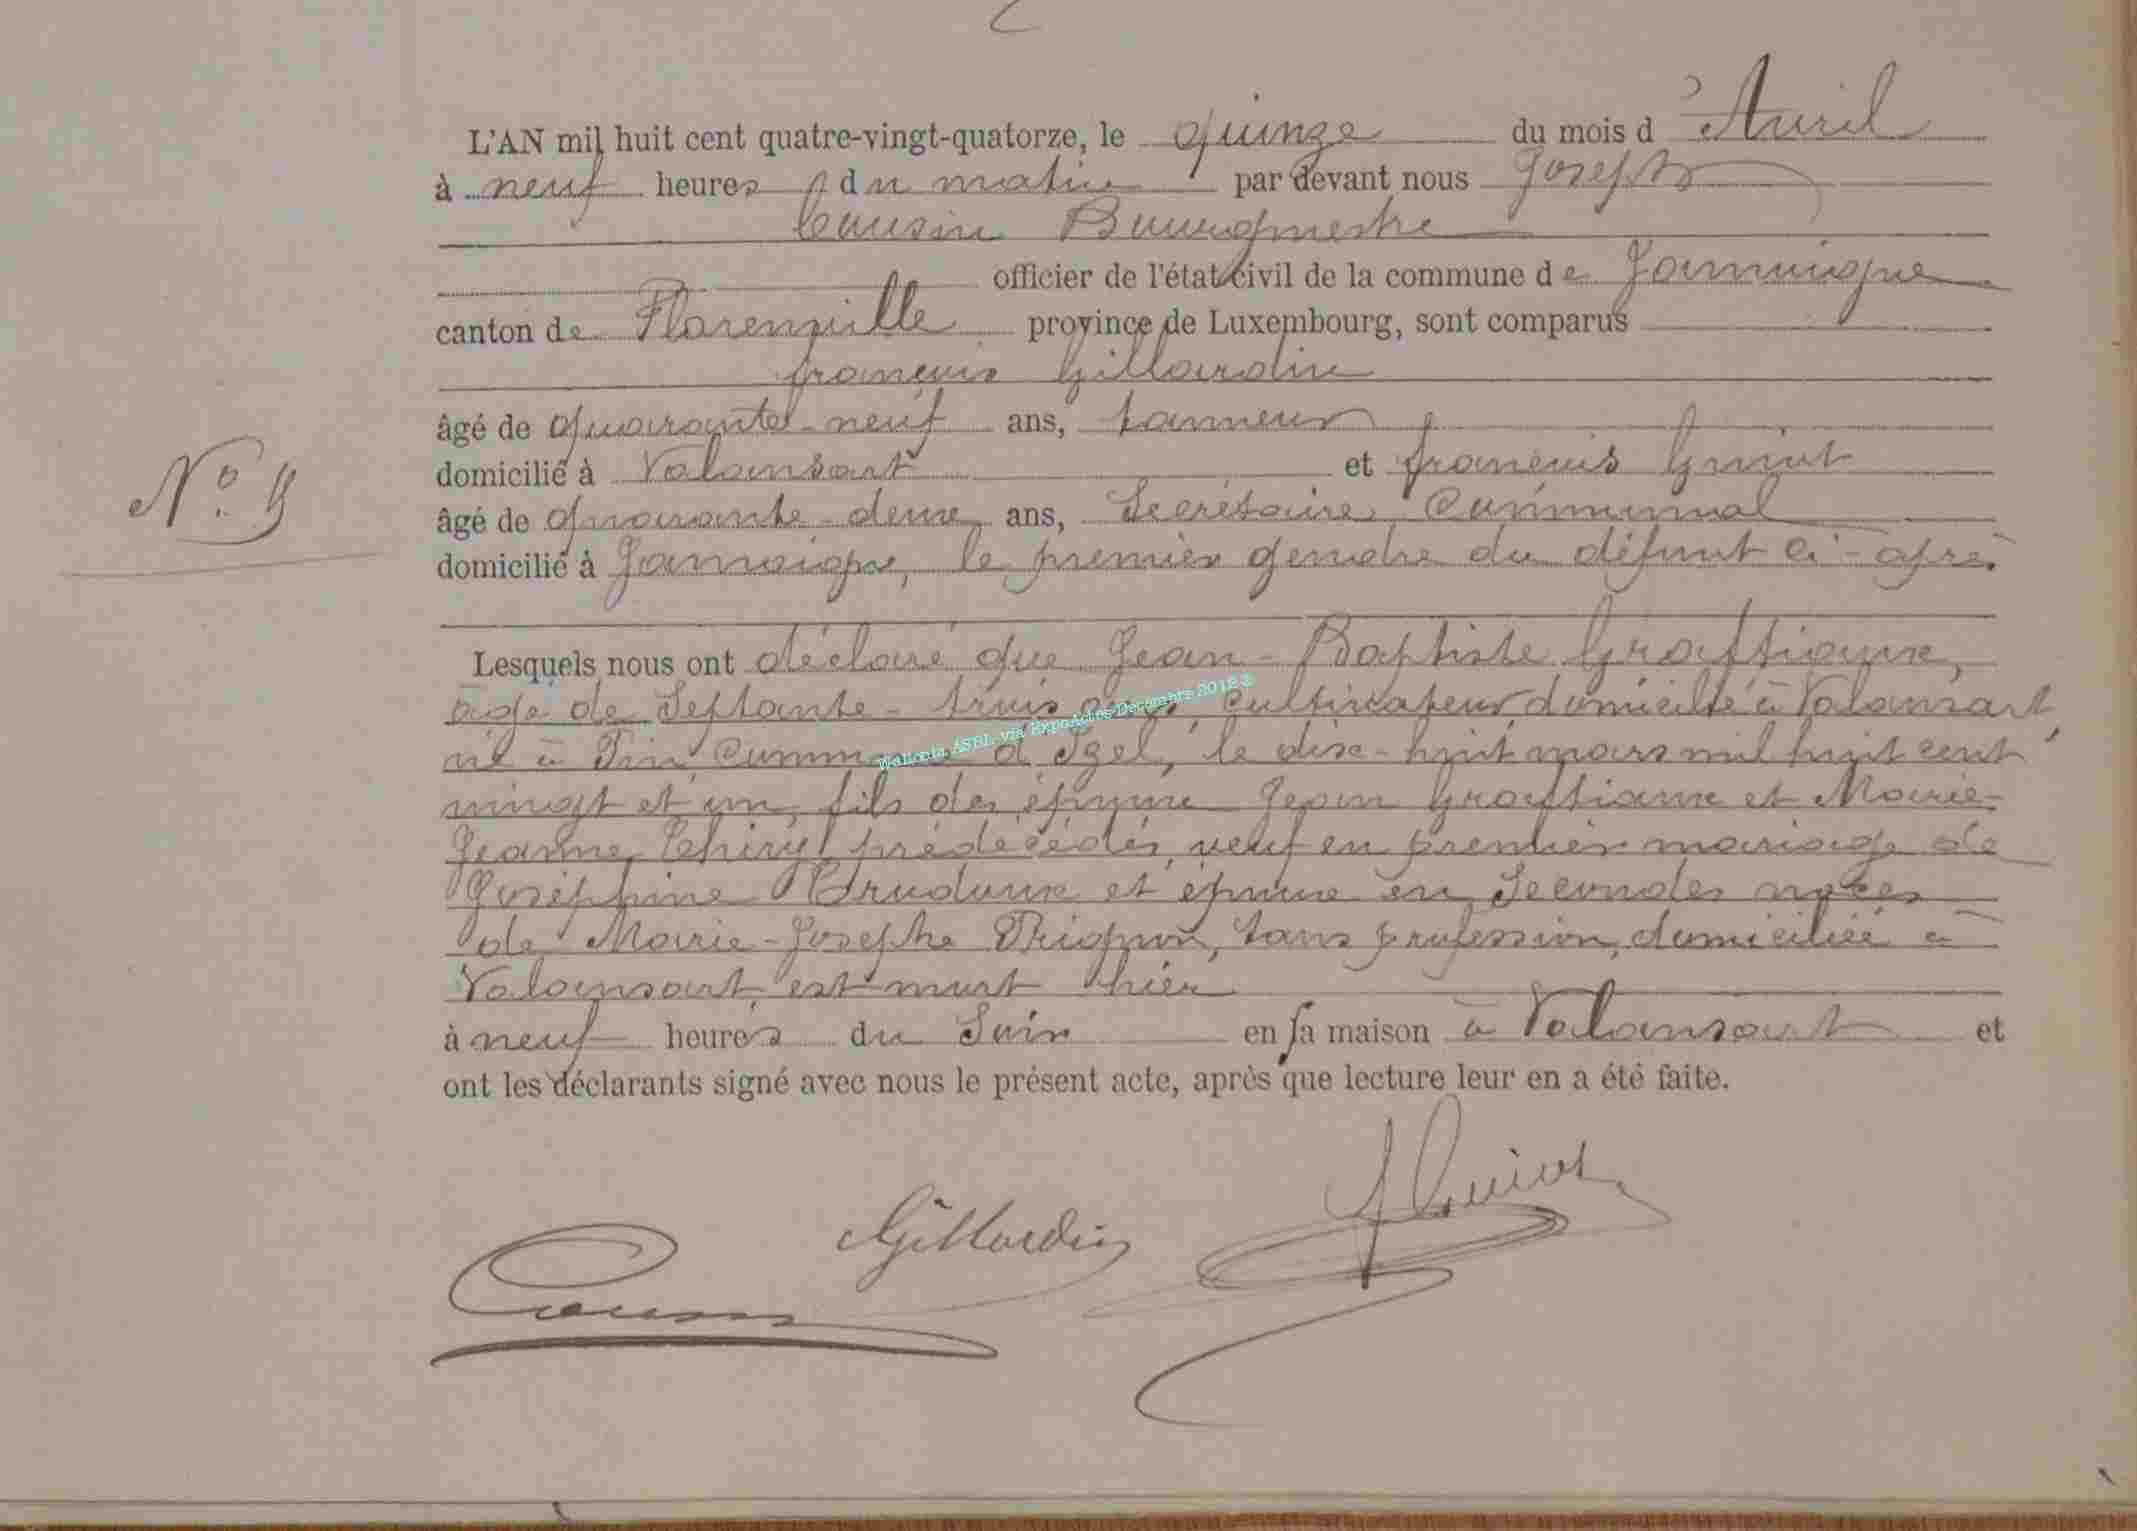 L'AN mil huit cent quatre-vingt-quatorze, le quinze du mois d'Avril
à neuf heures du matin par devant nous Joseph
Cousin Bourgmestre
officier de l'état civil de la commune de Jamoigne
canton de Florenville province de Luxembourg, sont comparus
françois Gillardin
âgé de quarante-neuf ans, tanneur
domicilié à Valansart et françois Guiot
N° 9
âgé de quarante-deux ans, Secrétaire Communal
domicilié à Jamoigne, le premier gendre du défunt ci-après
Lesquels nous ont déclaré que Jean-Baptiste Grafftiaux,
âgé de Septante-trois ans, cultivateur, domicilié à Valansart
né à Pin commune d'Izel, le dix-huit mars mil huit cent
vingt et un, fils des époux Jean Grafftiaux et Marie-
Jeanne Thiry prédécédés, veuf en premier mariage de
Joséphine et époux en Secondes noces
de Marie-Josephe Thignon, sans profession, domiciliée à
Valansart est mort hier
à neuf heures du Soir en sa maison à Valansart et
ont les déclarants signé avec nous le présent acte, après que lecture leur en a été faite.
Gillardin
F Guiot
Cousin
Wallonia ASBL via ExpoActes Decembre 2012